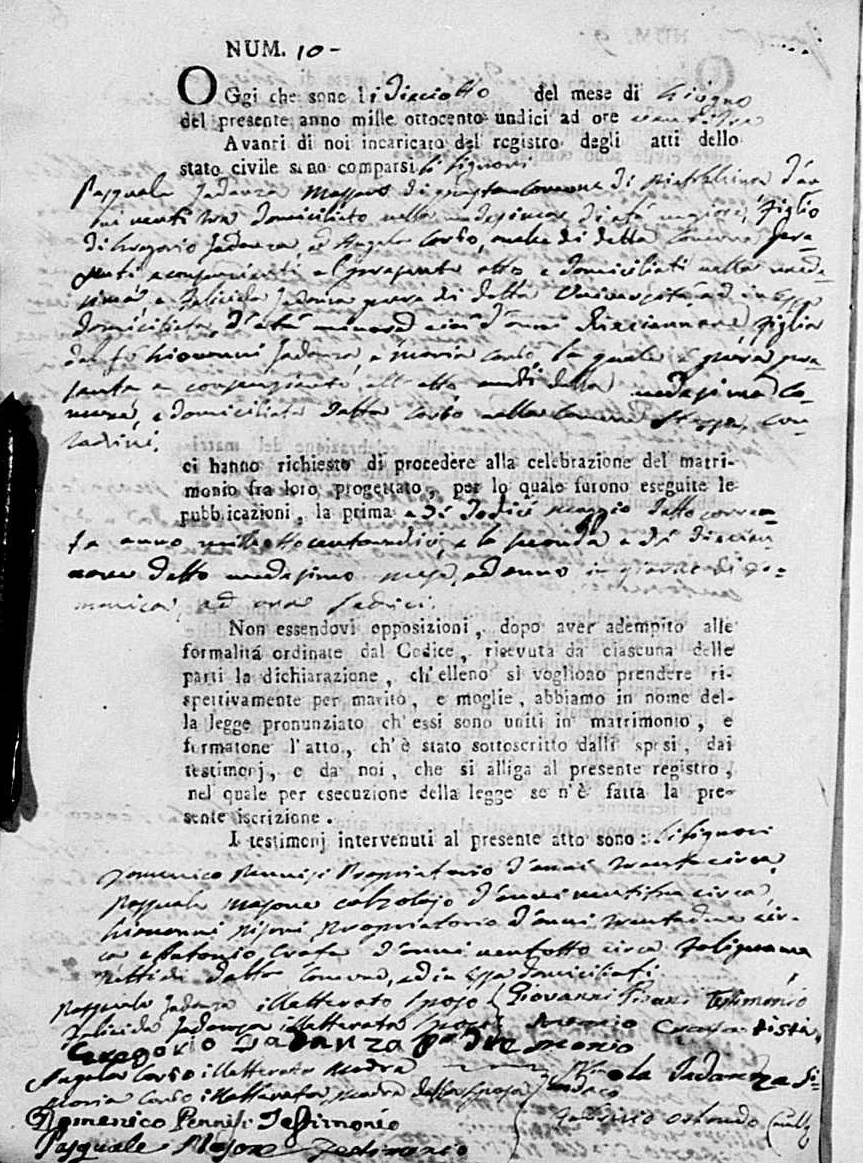 NUM. 10-
Oggi che sono li Dieciotto del mese di Giugno
del presente anno mille ottocento undici ad ore ventitre
Avanti di noi incaricato del registro degli atti dello
stato civile sono comparsi li Signori
Pasquale Jadanza di questa Comune di d'an-
ni venti tre domiciliato nella medesima, di età magiore, Figlio
di Gregorio Jadanza, ed Angela Corbo, anche di detta Comune pre-
senti e consenzienti al presente atto e domiciliati nella mede-
sima, e Felicida Jadanza pure di detta Università ed in essa
domiciliata, d'età minore cioè d'anni Diecinnove, Figlia
del fù Giovanni Jadanza, e Maria Corbo, la quale è pre-
sente e consenziente all'atto anche della medesima Co-
mune, e domiciliata detta Corbo nella Comune stessa, con-
tadini.
ci hanno richiesto di procedere alla celebrazione del matri-
monio fra loro progettato, per lo quale furono eseguite le
pubblicazioni, la prima a dì Dodici maggio detto corren-
te anno milleottocentoundici, e la seconda a dì diecin-
nove detto medesimo mese, ed anno in giorno di Do-
menica, ad ore sedici.
Non essendovi opposizioni, dopo aver adempito alle
formalitá ordinate dal Codice, ricevuta da ciascuna delle
parti la dichiarazione, ch'elleno si vogliono prendere ri-
spettivamente per marito, e moglie, abbiamo in nome del-
la legge pronunziato ch'essi sono uniti in matrimonio, e
formatone l'atto, ch'è stato sottoscritto dalli sposi, dai
testimonj, e da noi, che si alliga al presente registro,
nel quale per esecuzione della legge se n'è fatta la pre-
sente iscrizione.
I testimonj intervenuti al presente atto sono: li Signori
Domenico Pennisi Propriatario d'anni trenta circa,
Pasquale Masone calzolajo d'anni ventitre circa,
Giovanni Pisani Propriatario d'anni trentadue cir-
ca e Antonio d'anni ventotto circa
tutti di detta Comune, ed in essa domiciliati.
Pasquale Jadanza illetterato sposo Giovanni Pisani Testimonio
Felicida Jadanza illetterata sposa Antonio testi-
Gregorio Iadanza Padre monio
Angela Corbo illetterata Madre Nicola Iadanza Si-
Maria Corbo illetterata Madre della sposa ndaco
Domenico Pennisi Testimonio Orlando
Pasquale Masone Testimonio